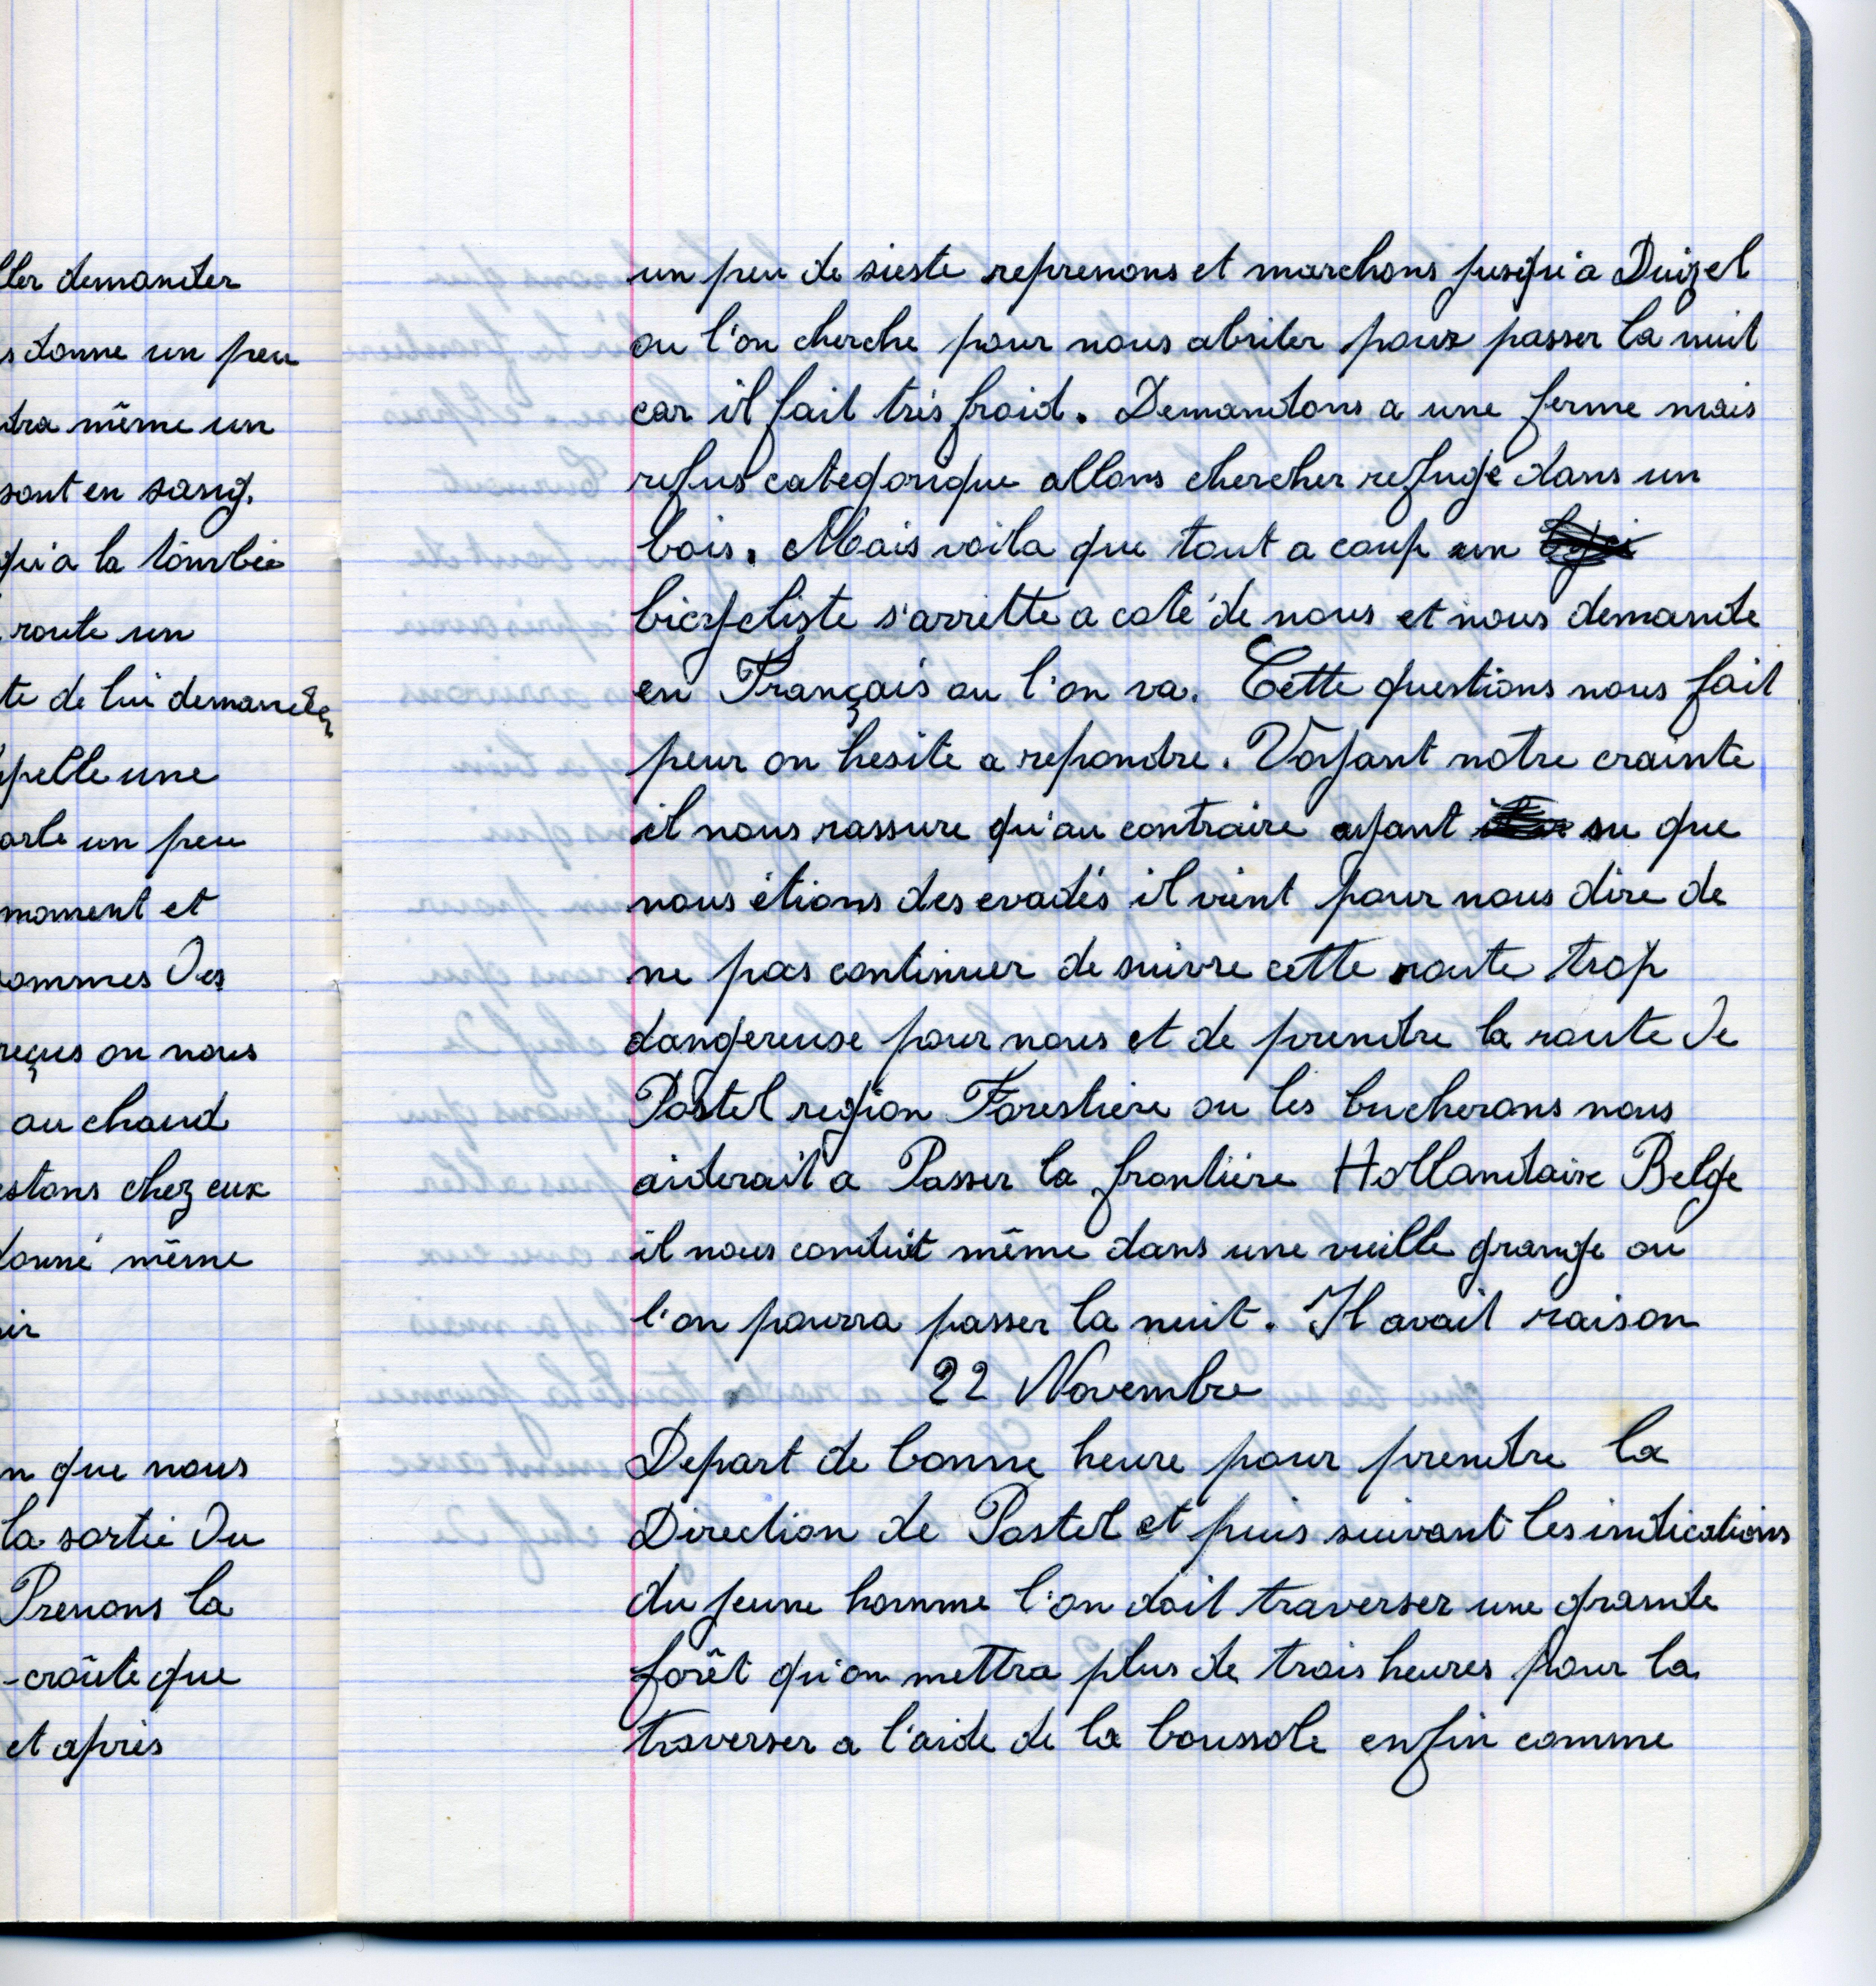 ller demander
s donne un peu
dra même un
sont en sang.
qu'a la tombée
route un
te de lui demander
pelle une
arle un peu
moment et
sommes des
reçus on nous
au chaud
estons chez eux
donné même
ir
n que nous
la sortie du
Prenons la
-croûte que
et après
un peu de sieste reprenons et marchons jusqu'a Duizel
ou l'on cherche pour nous abriter pour passer la nuit
car il fait très froid. Demandons a une ferme mais
refus categorique allons chercher refuge dans un
bois. Mais voila que tout a coup un
bicycliste s'arrette a coté de nous et nous demande
en Français ou l'on va. Cette questions nous fait
peur on hesite a repondre. Voyant notre crainte
il nous rassure qu'au contraire ayant su que
nous étions des evadés il vient pour nous dire de
ne pas continuer de suivre cette route trop
dangereuse pour nous et de prendre la route de
Postel region Forestiere ou les bucherons nous
aiderait a Passer la frontière Hollandaise Belge
il nous conduit même dans une vieille grange ou
l'on pourra passer la nuit. Il avait raison
22 Novembre
Depart de bonne heure pour prendre la
Direction de Postel et puis suivant les indications
du jeune homme l'on doit traverser une grande
forêt qu'on mettra plus de trois heures pour la
traverser a l'aide de la boussole enfin comme